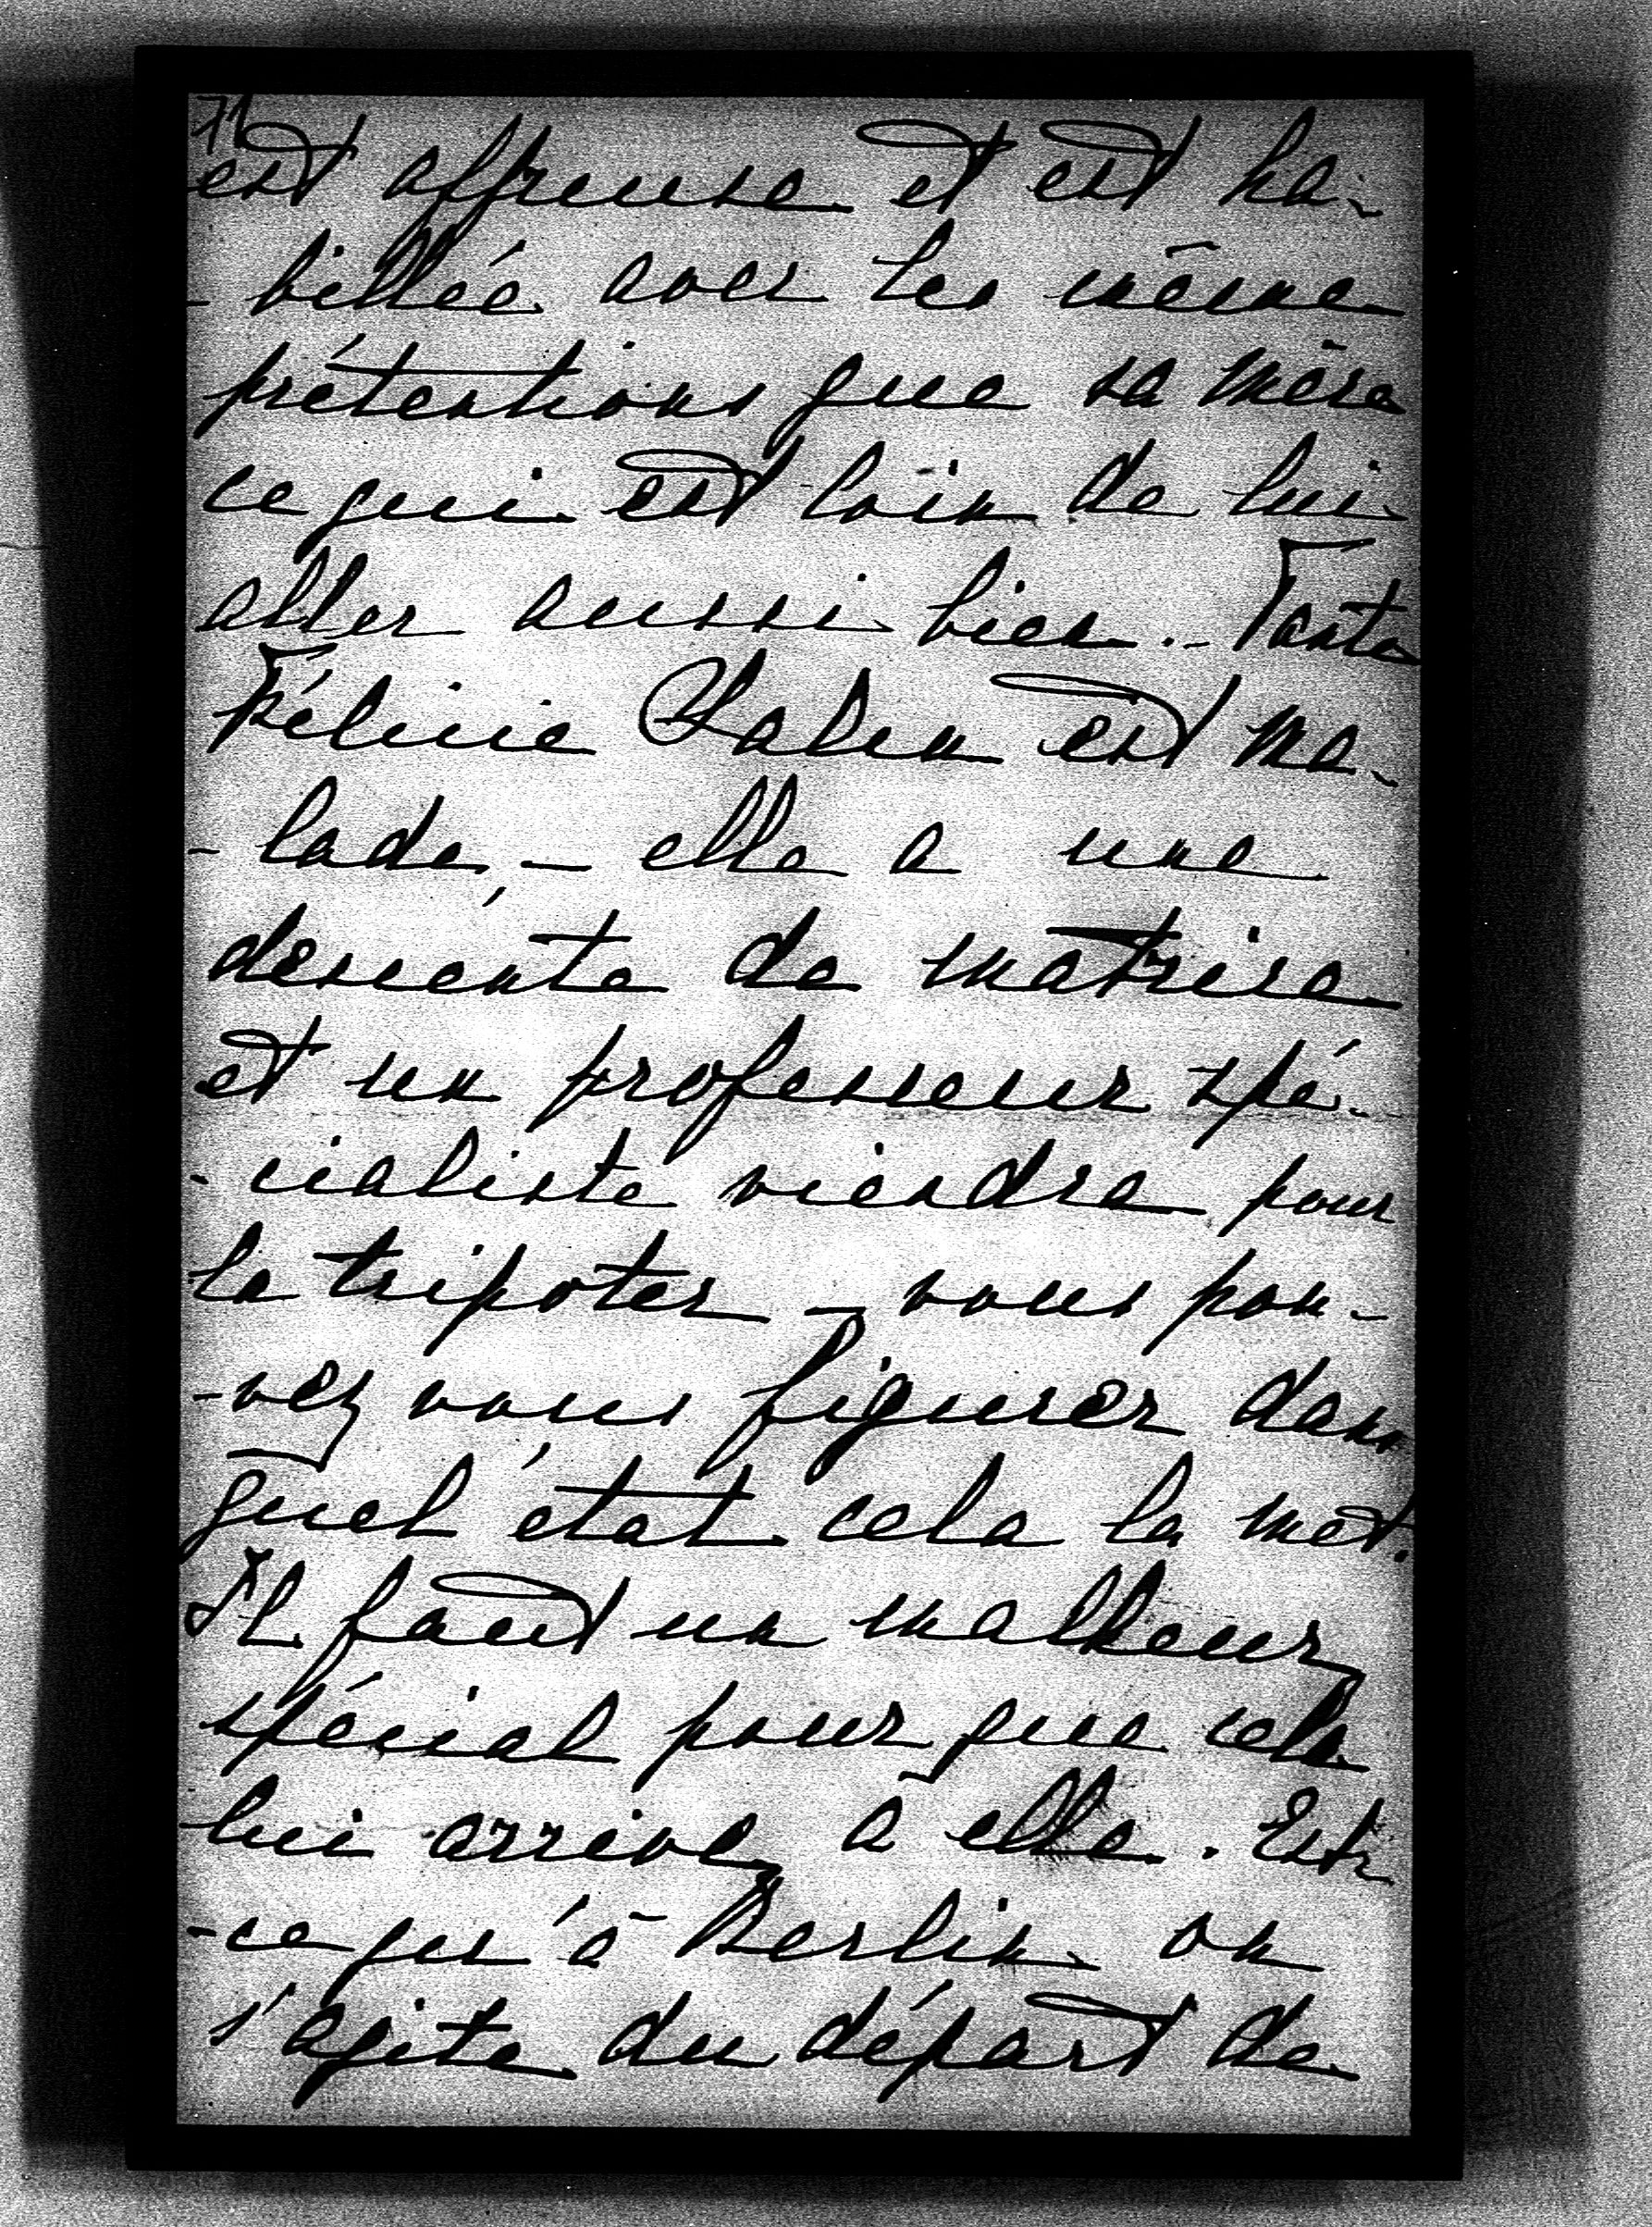 71
est affreuse et est ha-
-billée avec les même
prétentions que sa mère
ce qui est loin de lui
aller aussi bien. - Tante
Félicie est ma-
-lade, - elle a une
descente de matrice
et un professeur spé-
-cialiste viendra pour
la tripoter - vous pou-
-vez vous figurer dans
quel état cela la met.
Il faut un malheur
spécial pour que cela
lui arrive à elle. Est-
-ce qu'à Berlin on
s'agite du départ de